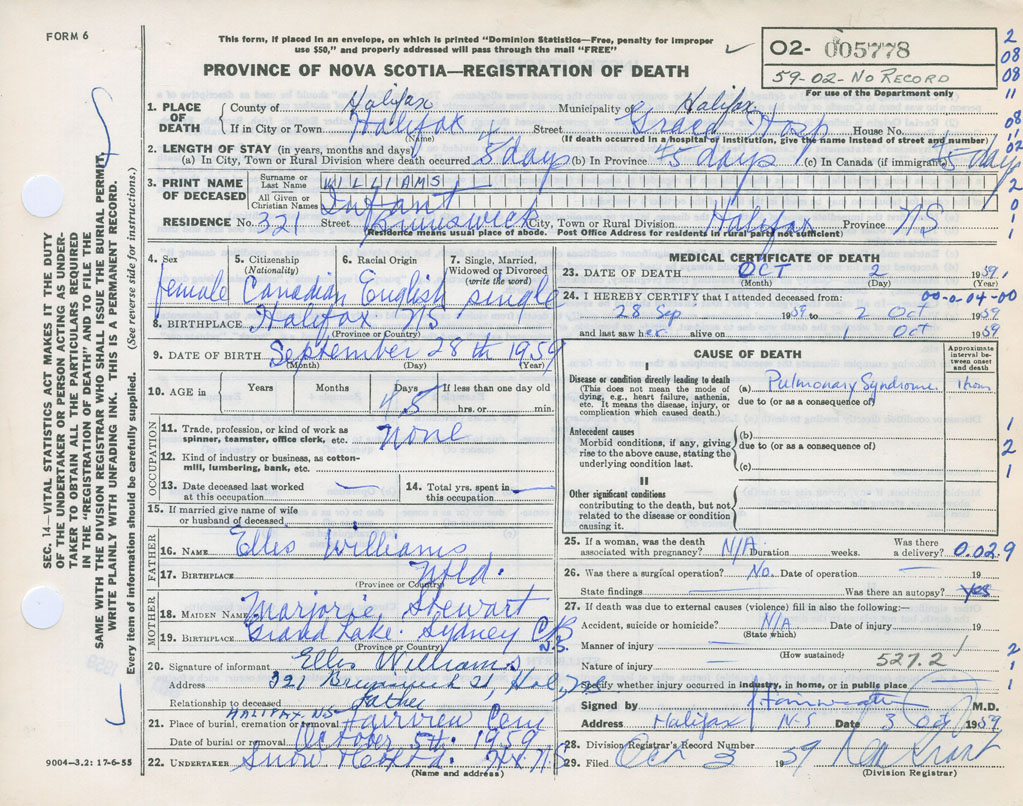 FORM 6
This form, if placed in an envelope, on which is printed "Dominion Statistics—Free, penalty for improper
use $50," and properly addressed will pass through the mail "FREE"
PROVINCE OF NOVA SCOTIA—REGISTRATION OF DEATH
02- 005778
59-02-No RECORD
For use of the Department only
2
08
08
11
1. PLACE OF DEATH
County of Halifax Municipality of Halifax
(Name)
If in City or Town Halifax Street Grace Hosp House No.
(If death occurred in a hospital or institution, give the name instead of street and number)
2. LENGTH OF STAY (in years, months and days)
(a) In City, Town or Rural Division where death occurred days (b) In Province days (c) In Canada (if immigrant) days
3. PRINT NAME OF DECEASED
Surname or Last Name WILLIAMS
All Given or Christian Names Infant
RESIDENCE No. 321 Street Brunswick City, Town or Rural Division Halifax Province NS
(Residence means usual place of abode. Post Office Address for residents in rural parts not sufficient)
4. Sex
female
5. Citizenship
(Nationality)
Canadian
6. Racial Origin
English
7. Single, Married, Widowed or Divorced
(write the word)
single
8. BIRTHPLACE Halifax NS
(Province or Country)
9. DATE OF BIRTH September 28th 1959
(Month) (Day) (Year)
10. AGE in
Years Months Days If less than one day old
hrs. or min.
OCCUPATION
11. Trade, profession, or kind of work as
spinner, teamster, office clerk, etc. None
12. Kind of industry or business, as cotton-
mill, lumbering, bank, etc.
13. Date deceased last worked
at this occupation —
14. Total yrs. spent in
this occupation —
15. If married give name of wife
or husband of deceased
FATHER
16. NAME Ellis Williams
17. BIRTHPLACE Nfld.
(Province or Country)
MOTHER
18. MAIDEN NAME Marjorie Stewart
19. BIRTHPLACE Grand Lake. Sydney C/B
(Province or Country) N.S.
20. Signature of informant Ellis Williams
Address 321 Brunswick St, Halifax
Relationship to deceased father
HALIFAX. NS
21. Place of burial, cremation or removal Fairview Cem
Date of burial or removal October 5th. 1959
22. UNDERTAKER Snow Hx. N.S
(Name and address)
9004—3.2: 17-6-55
MEDICAL CERTIFICATE OF DEATH
23. DATE OF DEATH OCT 2 1959
(Month) (Day) (Year)
24. I HEREBY CERTIFY that I attended deceased from: 00-0-04-00
28 Sep 1959 to 2 Oct 1959
and last saw her alive on 1 Oct 1959
CAUSE OF DEATH
Approximate interval between onset and death
I
Disease or condition directly leading to death
(This does not mean the mode of
dying, e.g., heart failure, asthenia,
etc. It means the disease, injury, or
complication which caused death.)
(a) Pulmonary Syndrome
due to (or as a consequence of)
Antecedent causes
Morbid conditions, if any, giving
rise to the above cause, stating the
underlying condition last.
(b)
due to (or as a consequence of)
(c)
II
Other significant conditions
contributing to the death, but not
related to the disease or condition
causing it.
25. If a woman, was the death Was there
associated with pregnancy? N/A Duration weeks. a delivery? 0.029
26. Was there a surgical operation? No. Date of operation — 19
State findings — Was there an autopsy? Yes
27. If death was due to external causes (violence) fill in also the following:—
Accident, suicide or homicide? N/A Date of injury 19
(State which)
Manner of injury —
(How sustained?)
527.2
Nature of injury —
Specify whether injury occurred in industry, in home, or in public place —
Signed by M.D.
Address Halifax N-S Date 3 Oct 1959
28. Division Registrar's Record Number
29. Filed Oct 3 1959
(Division Registrar)
SEC. 14—VITAL STATISTICS ACT MAKES IT THE DUTY
OF THE UNDERTAKER OR PERSON ACTING AS UNDER-
TAKER TO OBTAIN ALL THE PARTICULARS REQUIRED
IN THE "REGISTRATION OF DEATH" AND TO FILE THE
SAME WITH THE DIVISION REGISTRAR WHO SHALL ISSUE THE BURIAL PERMIT.
WRITE PLAINLY WITH UNFADING INK. THIS IS A PERMANENT RECORD.
Every item of information should be carefully supplied. (See reverse side for instructions.)